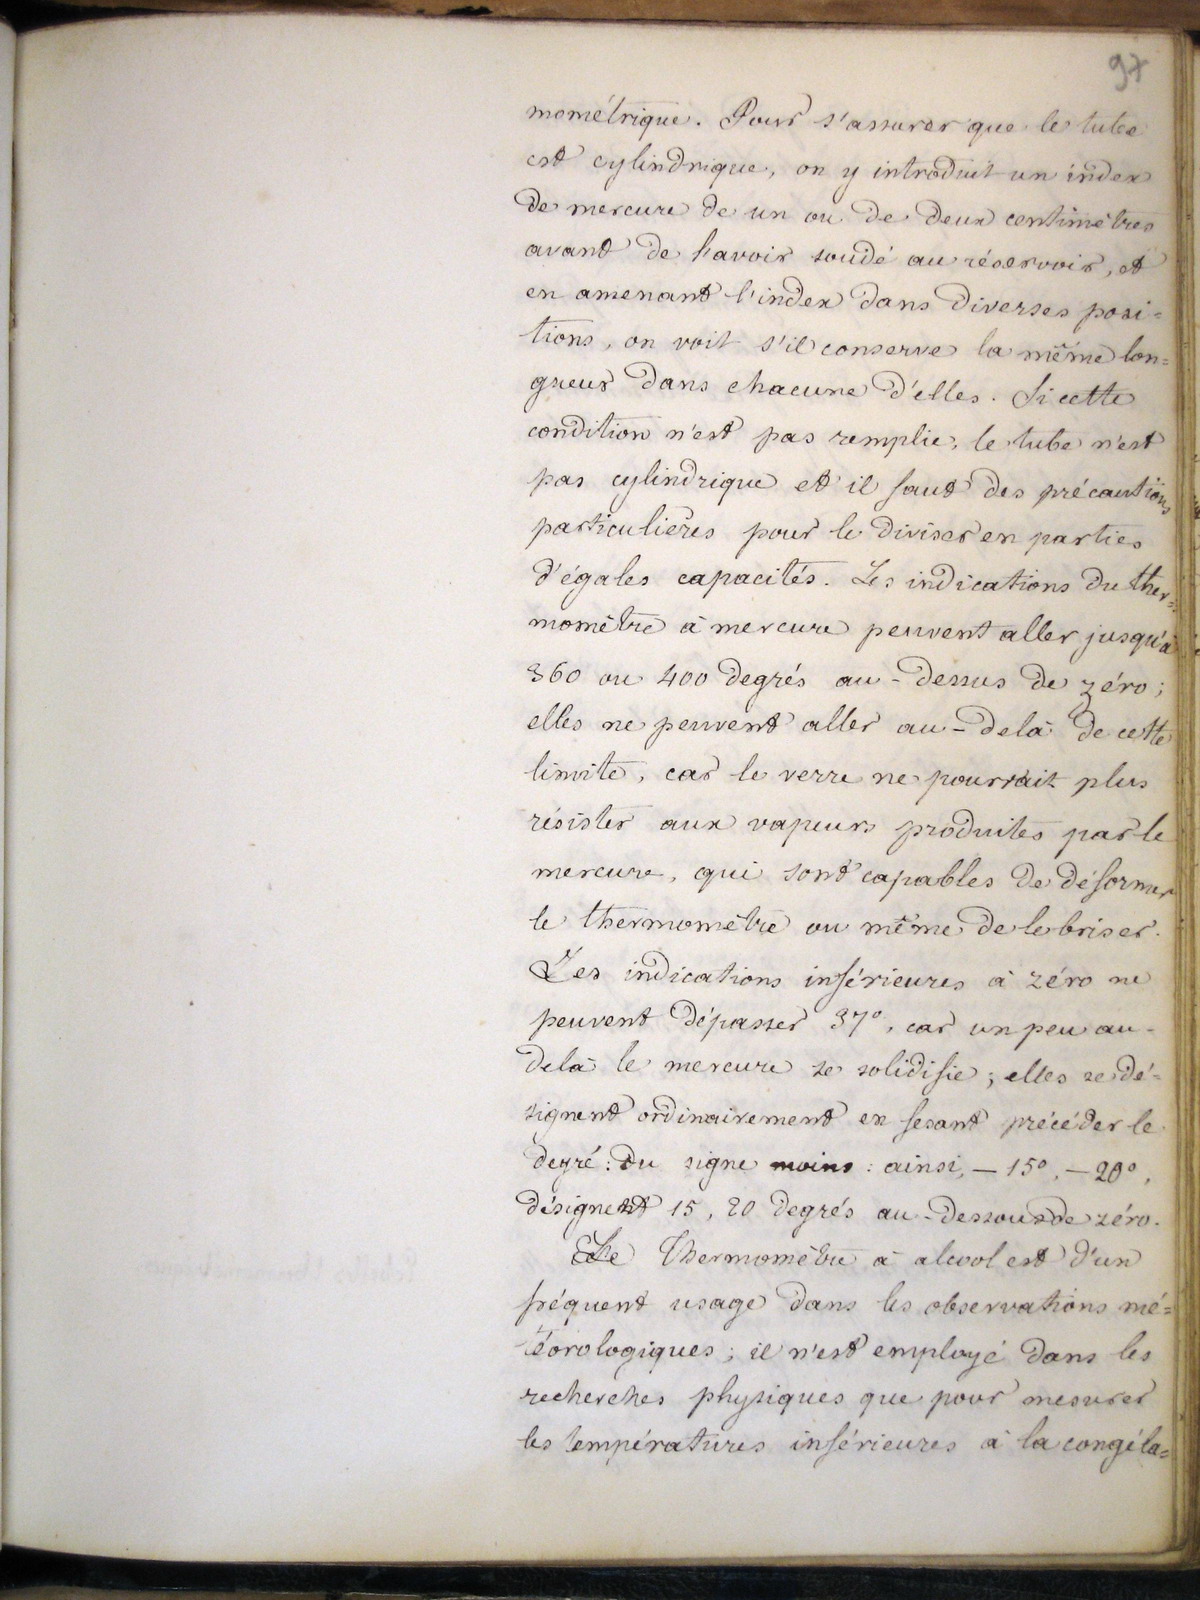 97
mométrique. Pour s'assurer que le tube
est cylindrique, on y introduit un index
de mercure de un ou de deux centimètres
avant de l'avoir soudé au réservoir, et
en amenant l'index dans diverses posi=
tions, on voit s'il conserve la même lon=
gueur dans chacune d'elles. Si cette
condition n'est pas remplie, le tube n'est
pas cylindrique et il faut des précautions
particulières pour le diviser en parties
d'égales capacités. Les indications du ther=
momètre à mercure peuvent aller jusqu'à
360 ou 400 degrés au-dessus de zéro;
elles ne peuvent aller au-delà de cette
limite, car le verre ne pourrait plus
résister aux vapeurs produites par le
mercure, qui sont capables de déformer
le thermomètre ou même de le briser.
Les indications inférieures à zéro ne
peuvent dépasser 37°, car un peu au-
delà le mercure se solidifie; elles se dé=
signent ordinairement en fesant précéder le
degré: du signe moins: ainsi, — 15°, — 20°,
désignent 15, 20 degrés au-dessous de zéro.
Le Thermomètre à alcool est d'un
fréquent usage dans les observations mé=
téorologiques; il n'est employé dans les
recherches physiques que pour mesurer
les températures inférieures à la congéla=